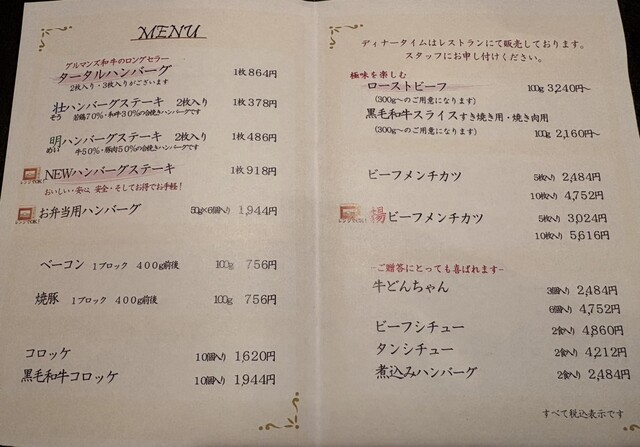 MENU
グルマンズ和牛のロングセラー
タータルハンバーグ 1枚 864円
2枚入り・3枚入りがございます
壮ハンバーグステーキ 2枚入り 1枚 378円
そう 若鶏70%・和牛30%の合挽きハンバーグです
明ハンバーグステーキ 2枚入り 1枚 486円
めい 牛50%・豚肉50%の合挽きハンバーグです
NEWハンバーグステーキ 1枚 918円
おいしい・安心 安全・そしてお得でお手軽!
お弁当用ハンバーグ 50g×6個入り 1,944円
ベーコン 1ブロック 400g前後 100g 756円
焼豚 1ブロック 400g前後 100g 756円
コロッケ 10個入り 1,620円
黒毛和牛コロッケ 10個入り 1,944円
ディナータイムはレストランにて販売しております。
スタッフにお申し付けください。
極味を楽しむ
ローストビーフ 100g 3,240円~
(300g~のご用意になります)
黒毛和牛スライスすき焼き用・焼き肉用
(300g~のご用意になります) 100g 2,160円~
ビーフメンチカツ 5枚入り 2,484円
10枚入り 4,752円
揚ビーフメンチカツ 5枚入り 3,024円
10枚入り 5,616円
-ご贈答にとっても喜ばれます-
牛どんちゃん 3個入り 2,484円
6個入り 4,752円
ビーフシチュー 2食入り 4,860円
タンシチュー 2食入り 4,212円
煮込みハンバーグ 2食入り 2,484円
すべて税込表示です